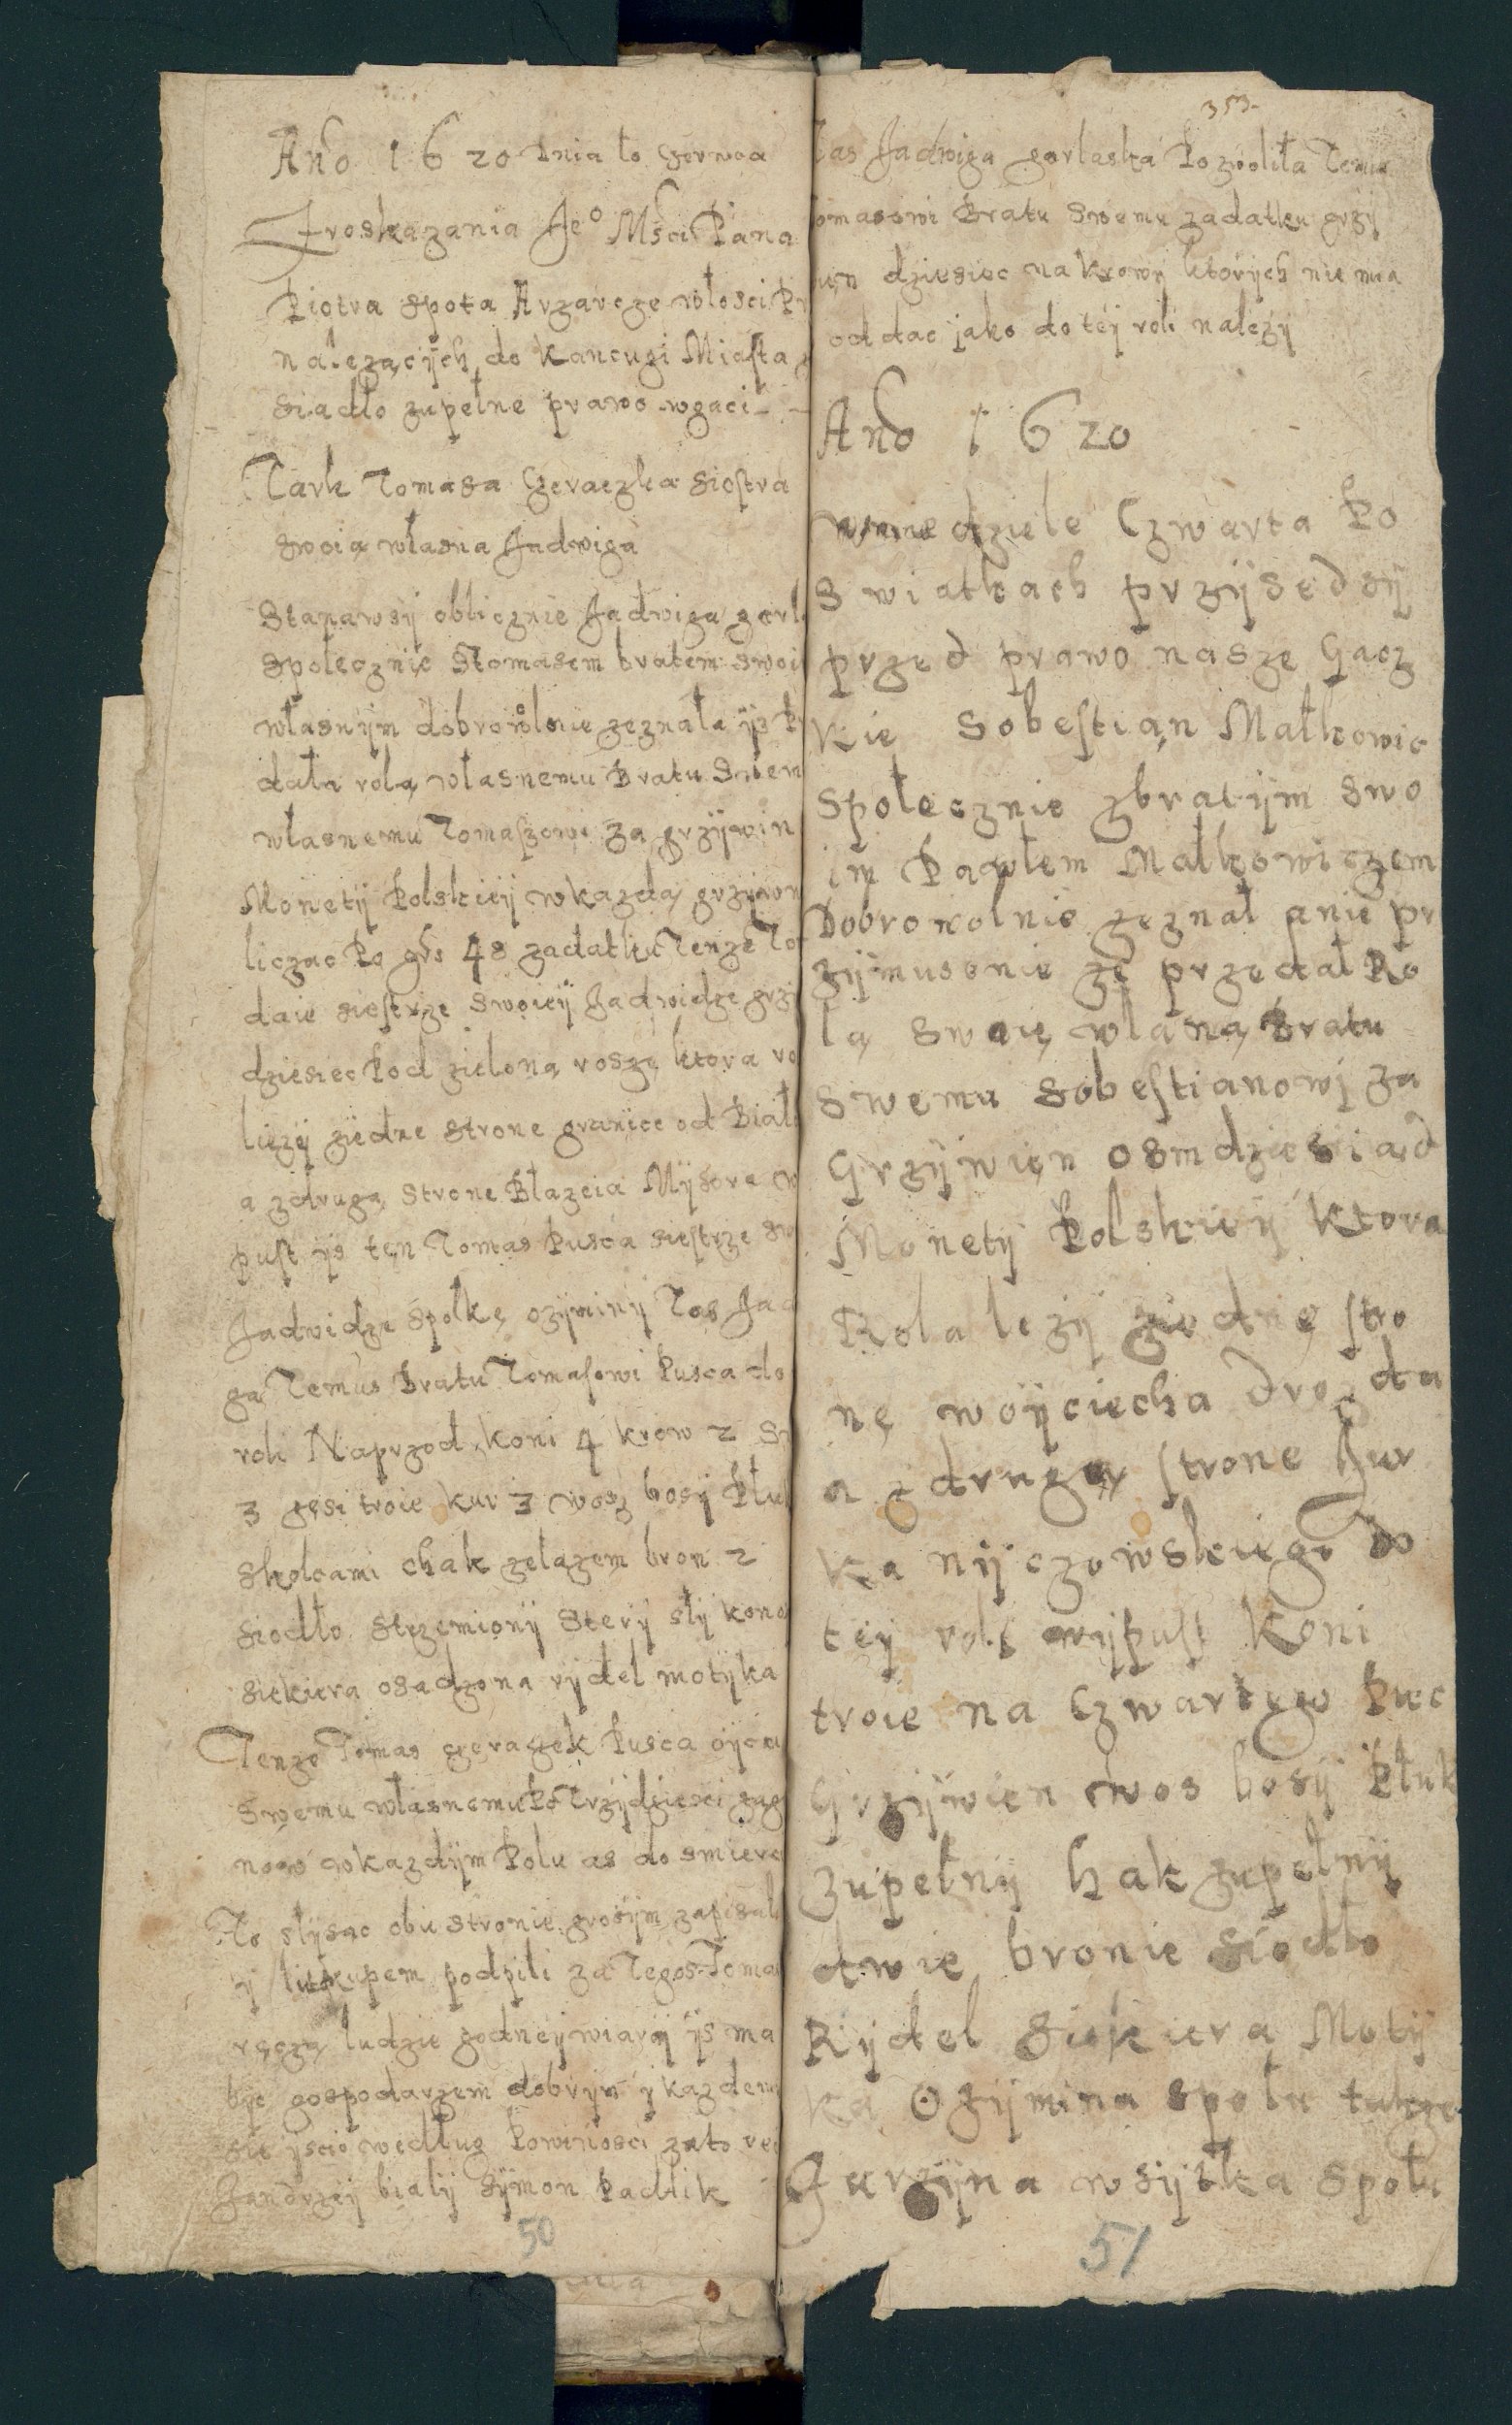 Año 1620 dnia to czerwca
Zroskazania Je° Mści Pana
Piotra spota Arzarcze włosci Pr
nalezącijch do Kancugi Miasta
siadło zupełne prawo wgaci
Tark Tomasa Geraczka siostra
swoią własna Jadwiga
Stanawsij oblicznie Jadwiga gorl
społecznie Stomasem bratem swoi
własnijm dobrowolnie zeznała ijz Pr
dała rolą własnemu Bratu Swem
własnemu Tomaszowi za grzijwin
Monetij Polskieij wkazdą grzijwn
liczac Po grs 48 zadatku Tenze To
daie siestrze swoieij Jadwidze grzi
dziesiec Pod zieloną roszą ktora ro
liezij ziedne strone granijce od Biał
a zdrugą strone Błazeia Mijsora w
pust ijs ten Tomas Pusca siestrze sw
Jadwidze społkę ozijminij Tas Jad
ga Temus Bratu Tomasowi Pusca do
roli Naprzod koni 4 krow 2 S
3 gęsi troie kur 3 wosz bosij Płu
skolcami chak zelazem bron 2
siodło strzemionij sterij slij kono
siekiera osadzona rijdel motijka
Tenze Tomas geraczek Pusca oijcu
Swemu własnemu Po Trzijdziesci zag
nowo wkazdijm Polu as do smierc
To slijsac obie stronie grosijm zapisal
ij litkupem podpili za Tegos Toma
ręczą ludzie godneij wiarij ijs ma
bijc gospodarzem dobrijm ij kazdem
sie ijscic według Powinosci zato rec
Jandrzeij bialij Sijmon Padlik
50
353
Tas Jadwiga gorlaska Pozwoliła Temu
omasowi Bratu Swemu zadatku grzij
wen dziesiec na Krowij ktorijch nie mia
oddac jako do teij roli nalezij
Año 1620
wniedziele Czwarta Po
Swiatkach przijsedsij
przed prawo nasze Gacz
Kie Sobestian Małkowic
społecznie zbratijm swo
im Pawłem Małkowiczem
Dobrowolnie zeznał anie pr
zijmusonie ze przedał Ro
lą swoię własną Bratu
Swemu Sobestianowi za
Grzijwien osmdziesiąd
Monetij Polskieij Ktora
Rola lezij ziednę stro
nę woijciecha drozda
a zdrugą strone Jur
ka nijczowskiego Do
teij roli wijpust Koni
troie na Czwartego Piec
Grzijwien wos bosij Płuk
zupełnij hak zupełnij
dwie bronie Siodło
Rijdel Siekiera Motij
ka Ozijmina społu takze
Jarzijna wsijtka społu
51